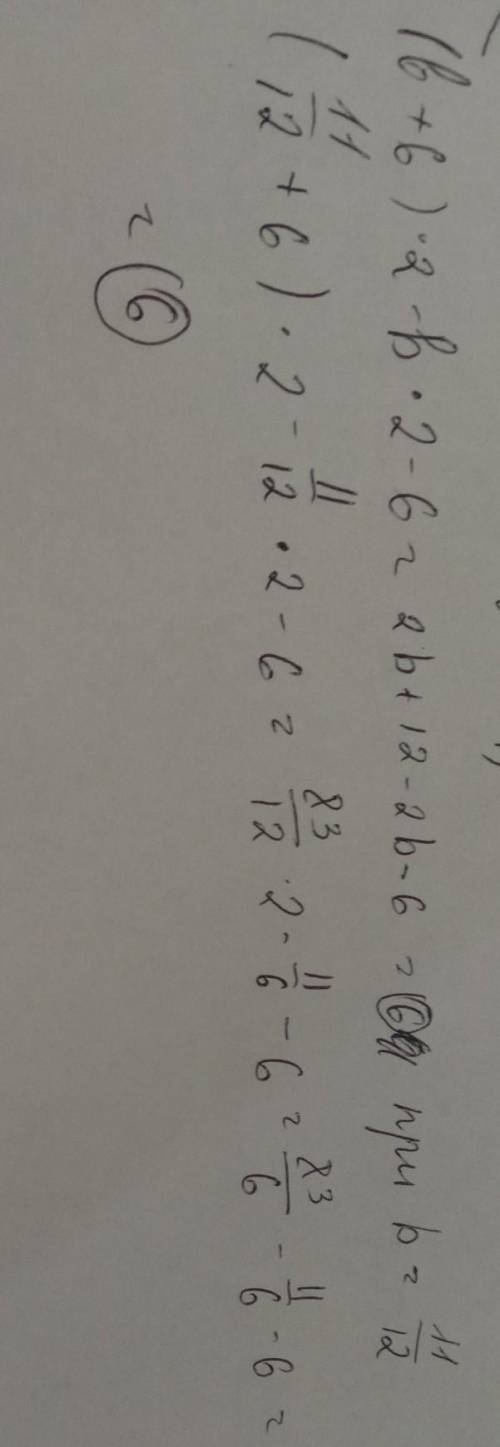 (b + 6) · 2 - b · 2 - 6 = 2b + 12 - 2b - 6 = 6 при b = 11/12
(11/12 + 6) · 2 - 11/12 · 2 - 6 = 83/12 · 2 - 11/6 - 6 = 83/6 - 11/6 - 6 =
= 6